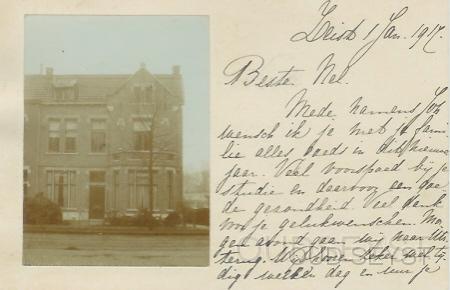 Zeist 1 Jan. 1917.
Beste Nel.
Mede namens
wensch ik je met je fami
lie alles goeds in dit nieuwe
jaar. Veel voorspoed bij je
studie en daarvoor een goe
de gezondheid. Veel dank
voor je gelukwenschen. Mor
gen avond gaan wij naar
terug. Wij hooren zeker wel tij
dig welken dag en uur je